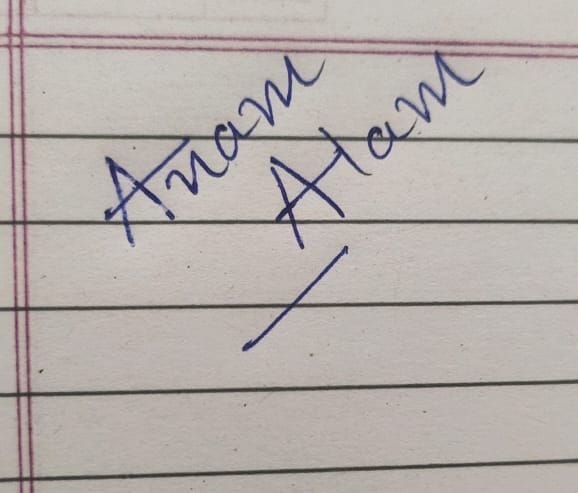 Anam
Alam